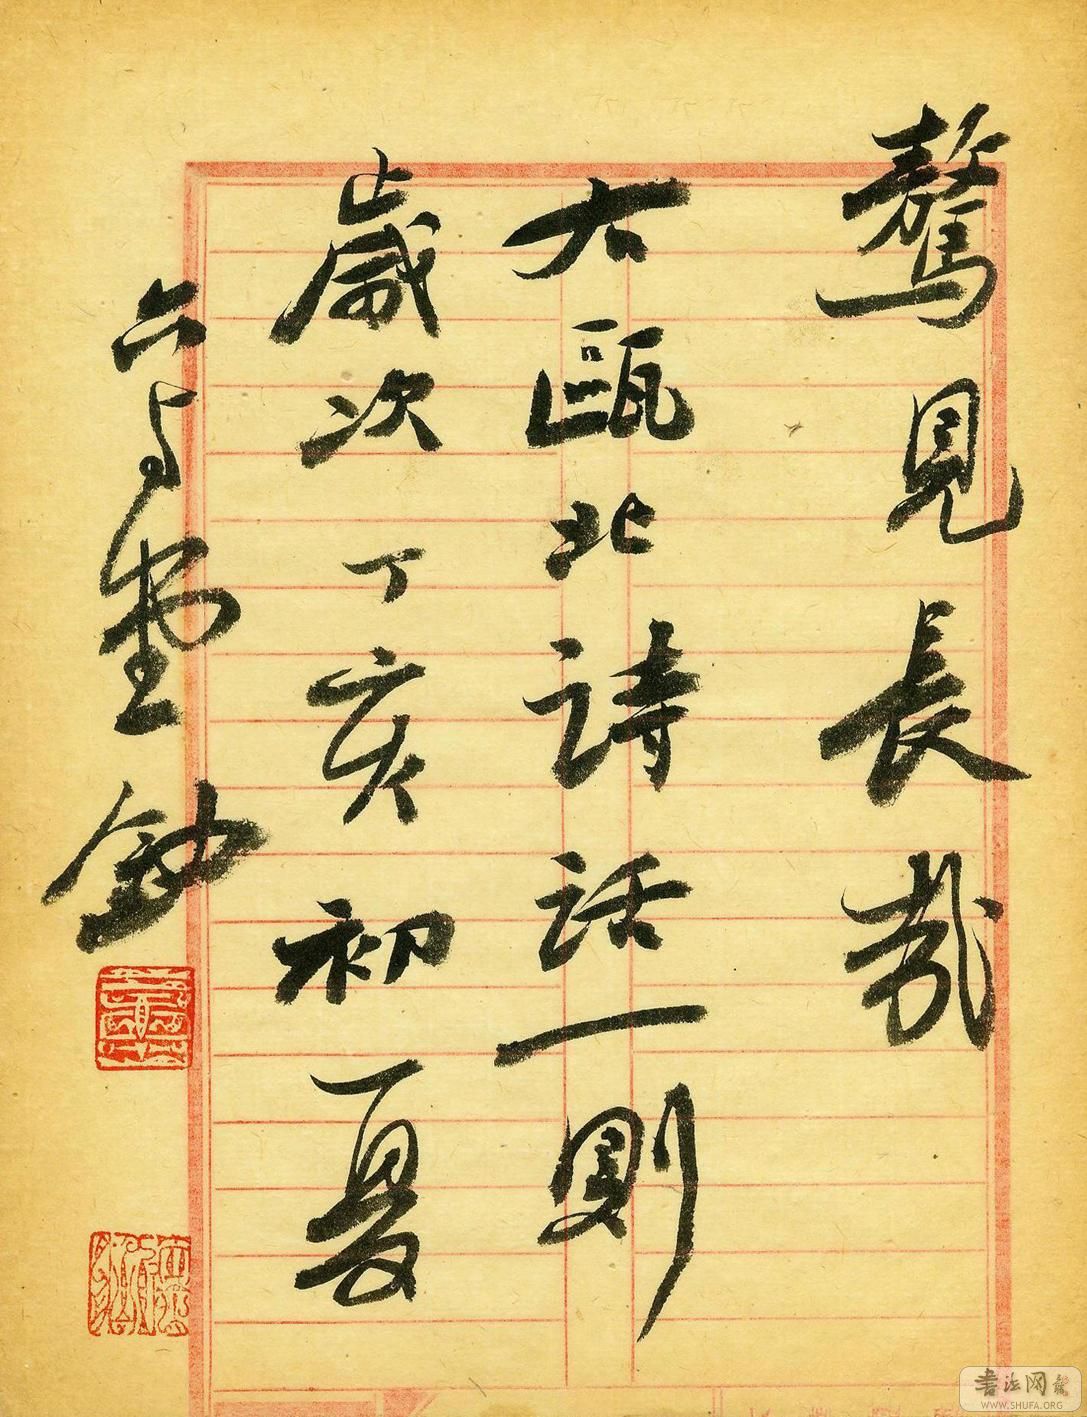 驁見長哉
右甌北詩話一則
歲次丁亥初夏
六堂鈔
書法网
WWW.SHUFA.ORG